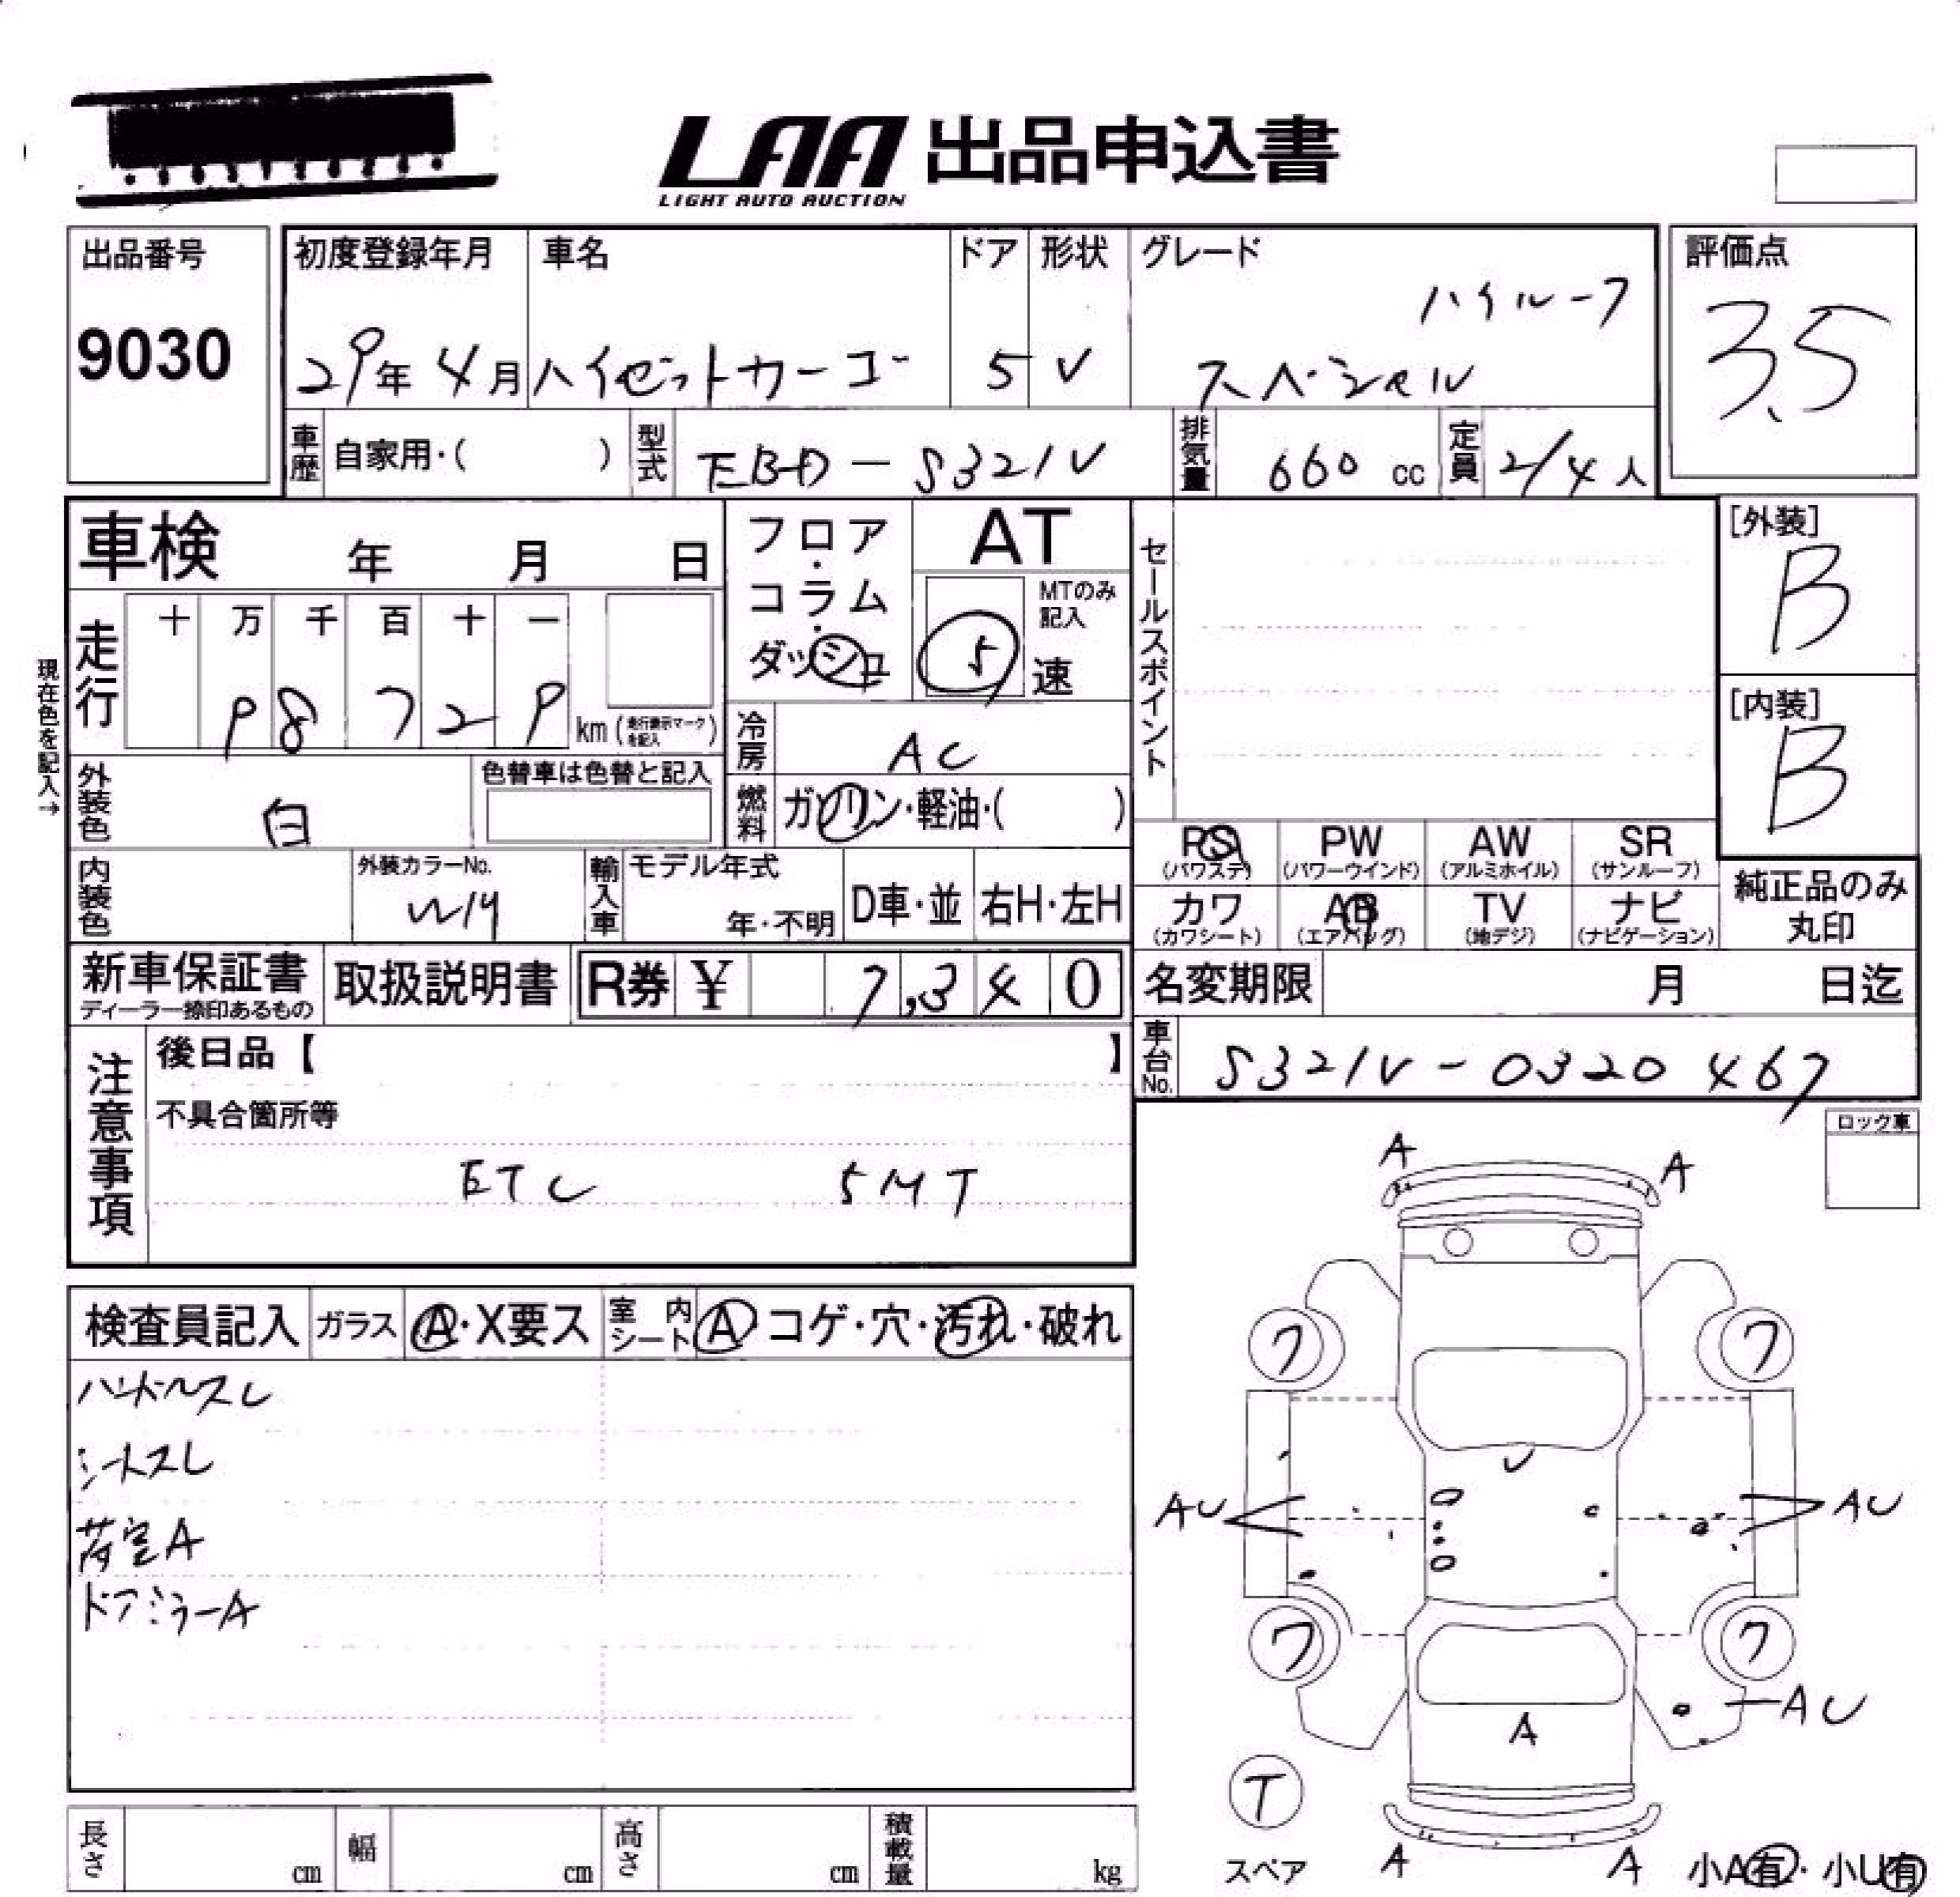 LAA 出品申込書
LIGHT AUTO AUCTION
出品番号
9030
初度登録年月
29年4月
車名
ハイゼットカーゴ
ドア
5
形状
V
グレード
ハイルーフ
スペシャル
評価点
3.5
車歴 自家用・( )
型式 EBD-S321V
排気量 660 cc
定員 2/4人
車検 年 月 日
走行 十 万 千 百 十 一
98729 km (走行表示マークを記入)
現在色を記入→
外装色 白
色替車は色替と記入
内装色
外装カラーNo.
W19
輸入車 モデル年式
年・不明
D車・並
右H・左H
フロア・コラム・ダッシュ
AT
MTのみ記入
5速
冷房 AC
燃料 ガソリン・軽油・( )
セールスポイント
[外装]
B
[内装]
B
PS PW AW SR
(パワステ) (パワーウインド) (アルミホイル) (サンルーフ)
カワ AB TV ナビ
(カワシート) (エアバッグ) (地デジ) (ナビゲーション)
純正品のみ
丸印
新車保証書
ディーラー捺印あるもの
取扱説明書
R券 ¥ 7,340
名変期限 月 日迄
車台No. S321V-0320467
注意事項
後日品【 】
不具合箇所等
ETC 5MT
ロック車
検査員記入 ガラス A・X要ス 室内シート A コゲ・穴・汚れ・破れ
ハンドルスレ
シートスレ
荷室A
ドアミラーA
A A
ワ ワ
U
AU AU
ワ ワ
AU
A
T
スペア
A A
小A有・小U有
長さ cm 幅 cm 高さ cm 積載量 kg